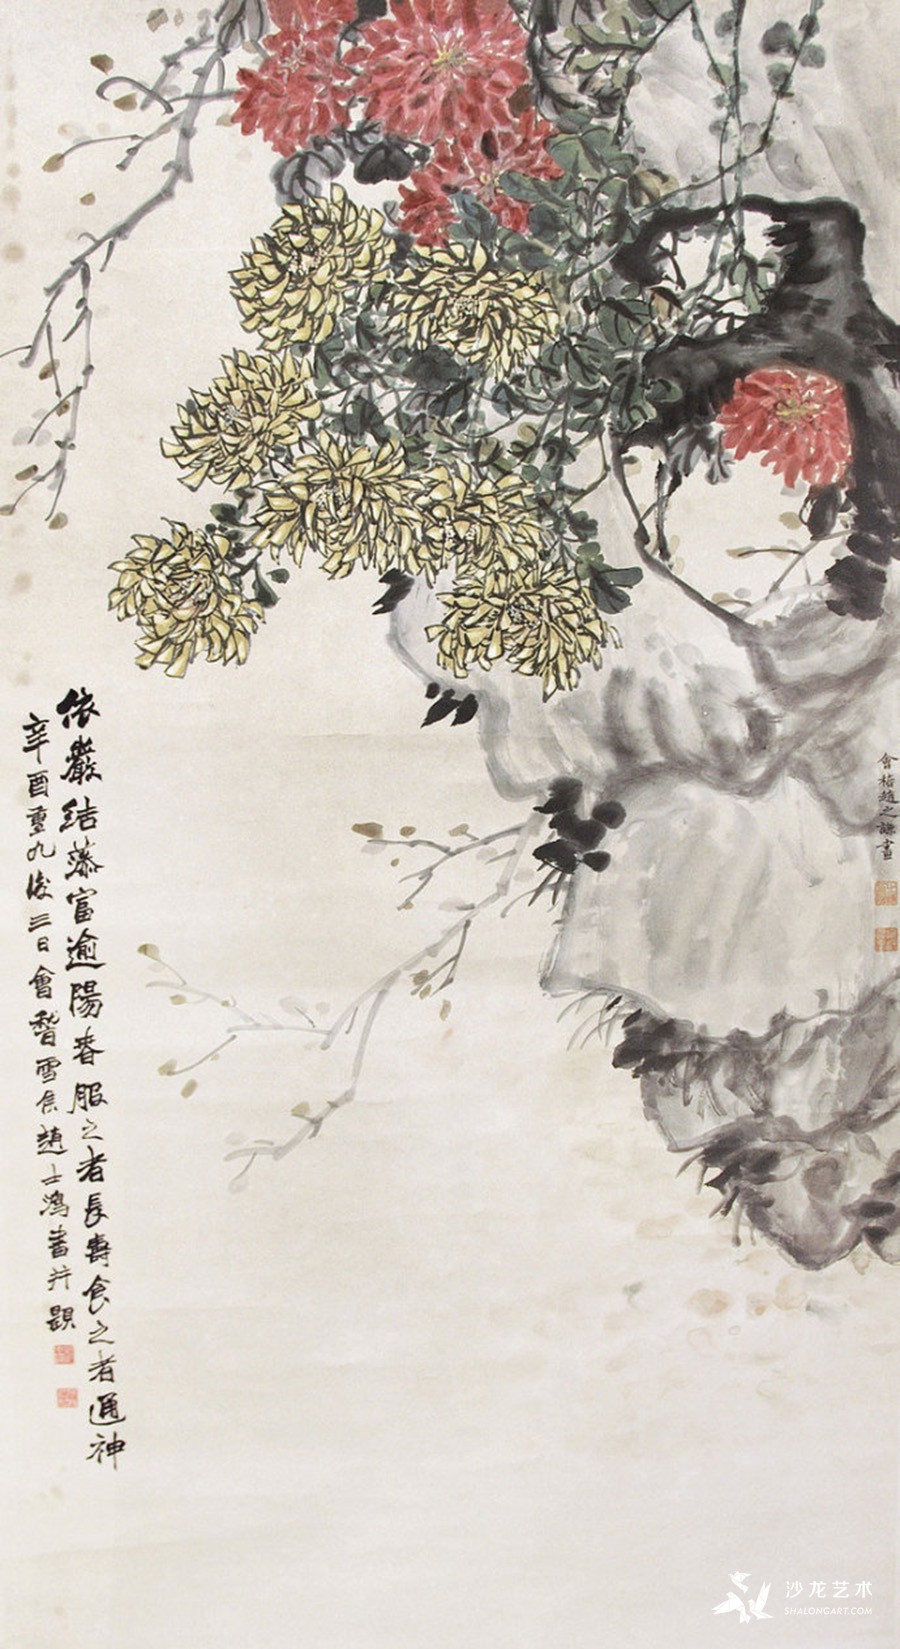 依巖結藻富逾陽春服之者長壽食之者通神
辛酉重九後三日會稽雪侯趙士鴻書并題
會稽趙之謙畫
沙龙艺术
SHALONGART.COM